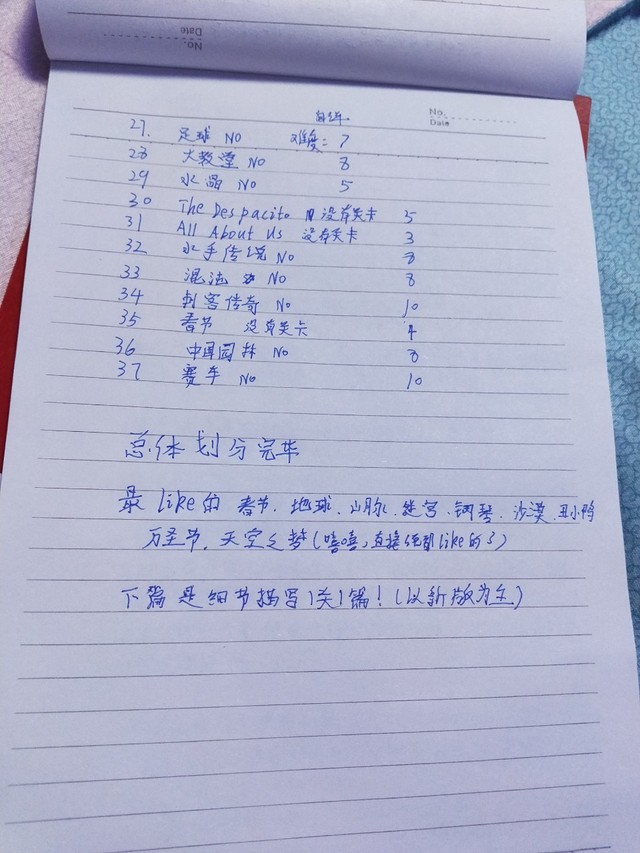 No.
Date
No.
Date
27. 足球 NO 难度: 7
28 大教堂 NO 8
29 水晶 NO 5
30 The Despacito 没有关卡 5
31 All About Us 没有关卡 3
32 水手传说 No 8
33 混沌 No 8
34 刺客传奇 No 10
35 春节 没有关卡 4
36 中国园林 No 8
37 赛车 No 10
总体划分完毕
最like的 春节、地球、山脉、迷宫、钢琴、沙漠、丑小鸭
万圣节、天空之梦(嘻嘻,直接like的了)
下篇是细节描写1关1篇!(以新版为主)